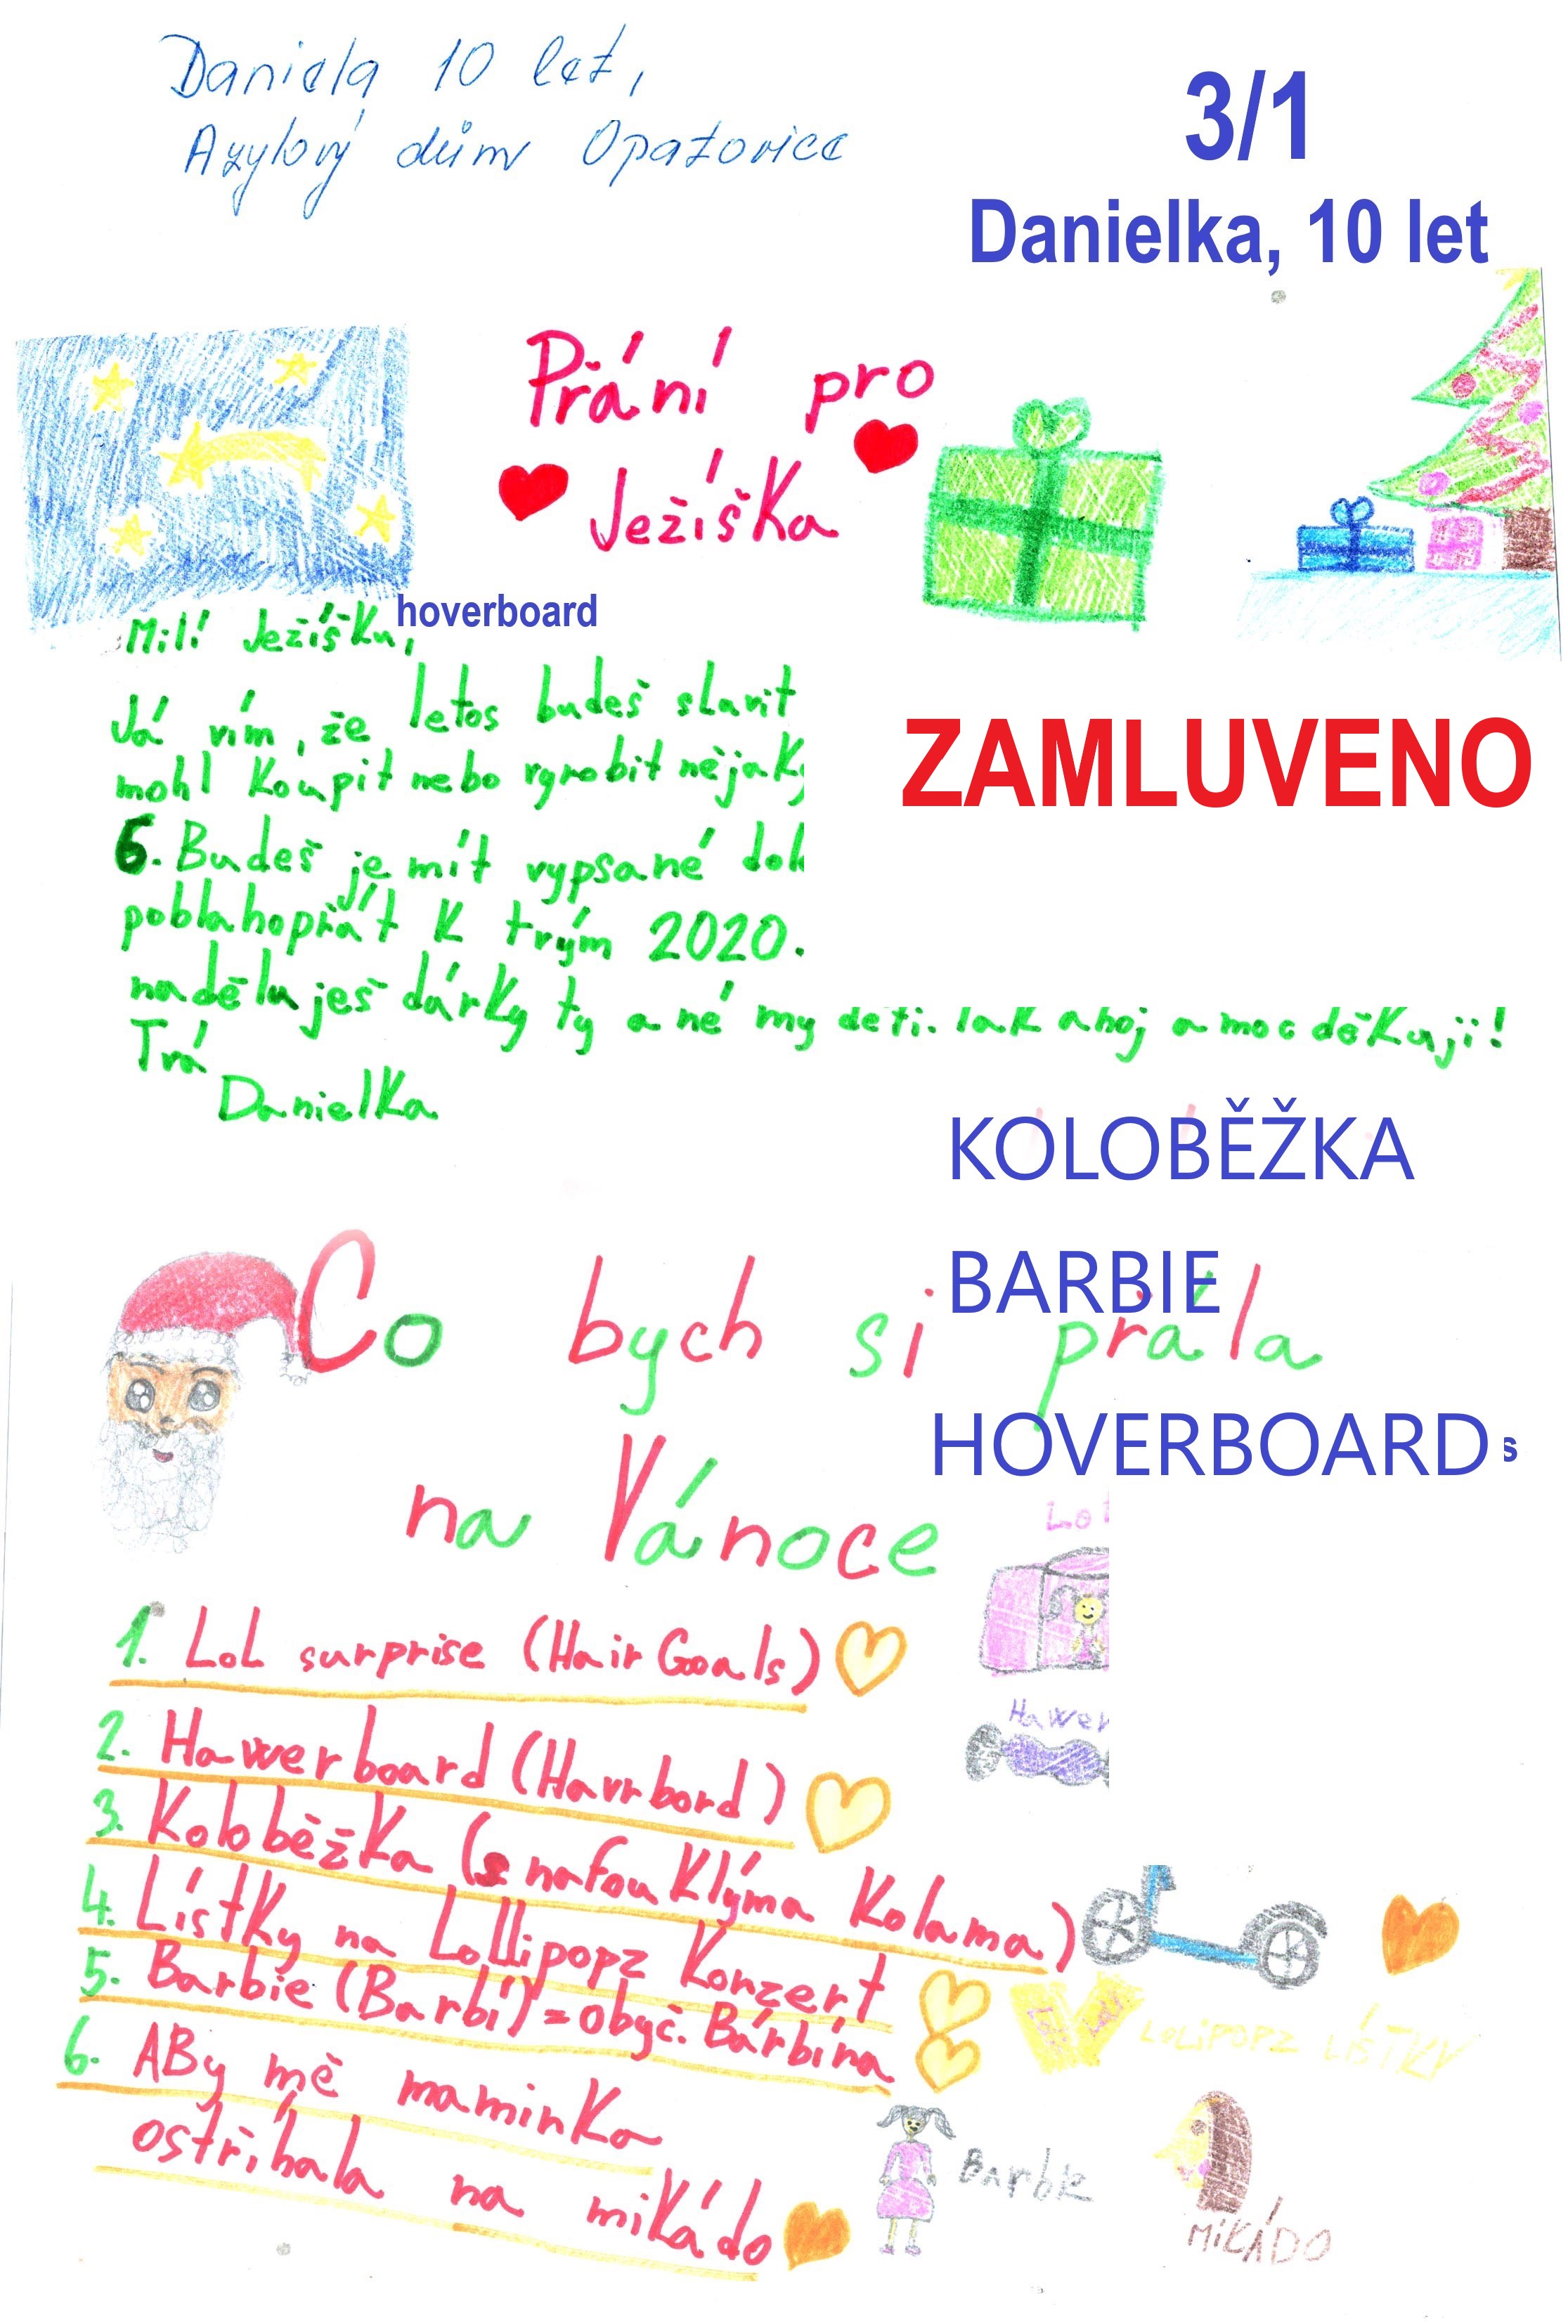 Daniela 10 let,
Azylový dům Opatovice
3/1
Danielka, 10 let
Přání pro
Ježíška
hoverboard
Milí Ježíšku,
Já vím, že letos budeš slavit
mohl koupit nebo vyrobit nějak
ZAMLUVENO
6. Budeš je mít vypsané dol
poblahopřát k tvým 2020.
naděluješ dárky ty a né my děti. Tak ahoj a moc děkuji!
Tvá
Danielka
KOLOBĚŽKA
BARBIE
Co bych si přála
HOVERBOARD s
na Vánoce
Lol
1. LoL surprise (Hair Goals)
Hawer
2. Hawerboard (Havrbord)
3. Koloběžka (s nafouklýma kolama)
4. Lístky na Lollipopz Konzert
LOLIPOPZ LÍSTKY
5. Barbie (Barbí) = obyč. Bárbína
6. ABy mě maminka
ostříhala na mikádo
Barbie
MIKÁDO